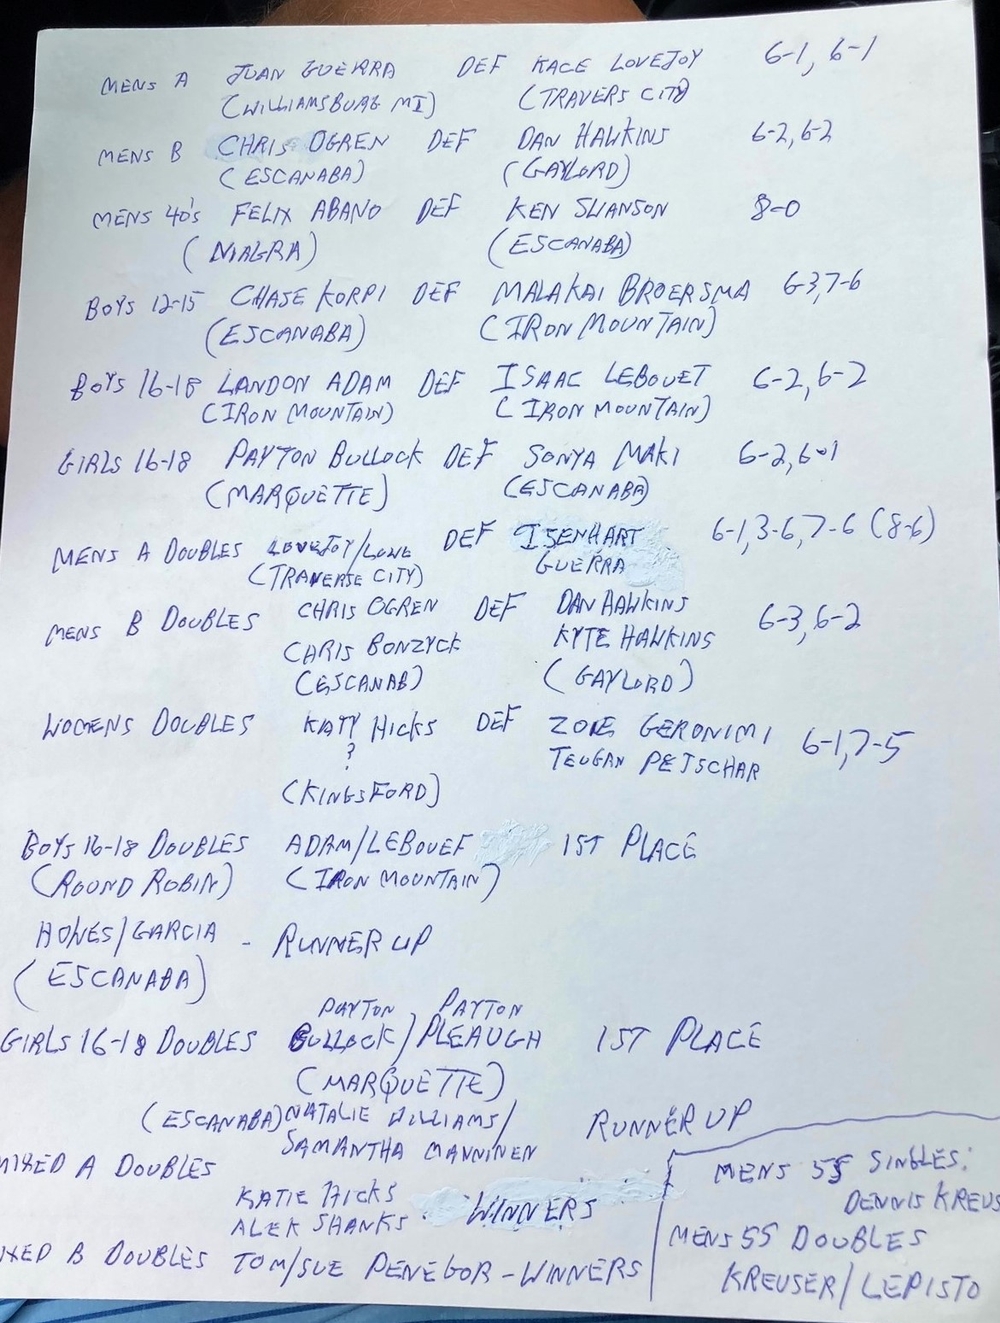 MENS A JUAN GUERRA DEF KACE LOVEJOY 6-1, 6-1
(WILLIAMSBURG MI) (TRAVERS CITY)
MENS B CHRIS OGREN DEF DAN HAWKINS 6-2, 6-2
(ESCANABA) (GAYLORD)
MENS 40's FELIX ABANO DEF KEN SWANSON 8-0
(NIAGRA) (ESCANABA)
BOYS 12-15 CHASE KORPI DEF MALAKAI BROERSMA 6-3, 7-6
(ESCANABA) (IRON MOUNTAIN)
BOYS 16-18 LANDON ADAM DEF ISAAC LEBOUET 6-2, 6-2
(IRON MOUNTAIN) (IRON MOUNTAIN)
GIRLS 16-18 PAYTON BULLOCK DEF SONYA MAKI 6-2, 6-1
(MARQUETTE) (ESCANABA)
MENS A DOUBLES LOVEJOY/LOWE DEF ISENHART 6-1, 3-6, 7-6 (8-6)
(TRAVERSE CITY) GUERRA
MENS B DOUBLES CHRIS OGREN DEF DAN HAWKINS 6-3, 6-2
CHRIS BONZYCK KYTE HAWKINS
(ESCANAB) (GAYLORD)
WOMENS DOUBLES KATY HICKS DEF ZOIE GERONIMI 6-1, 7-5
? TEUGAN PETSCHAR
(KINGSFORD)
BOYS 16-18 DOUBLES ADAM/LEBOUEF 1ST PLACE
(ROUND ROBIN) (IRON MOUNTAIN)
HOWES/GARCIA - RUNNER UP
(ESCANABA)
PAYTON PAYTON
GIRLS 16-18 DOUBLES BULLOCK/PLEAUGH 1ST PLACE
(MARQUETTE)
(ESCANABA) NATALIE WILLIAMS/ RUNNER UP
SAMANTHA MANNINEN
MIXED A DOUBLES
KATIE HICKS WINNERS
ALEK SHANKS
IXED B DOUBLES TOM/SUE PENEGOR - WINNERS
MENS 55 SINGLES:
DENNIS KREUS
MENS 55 DOUBLES
KREUSER/LEPISTO